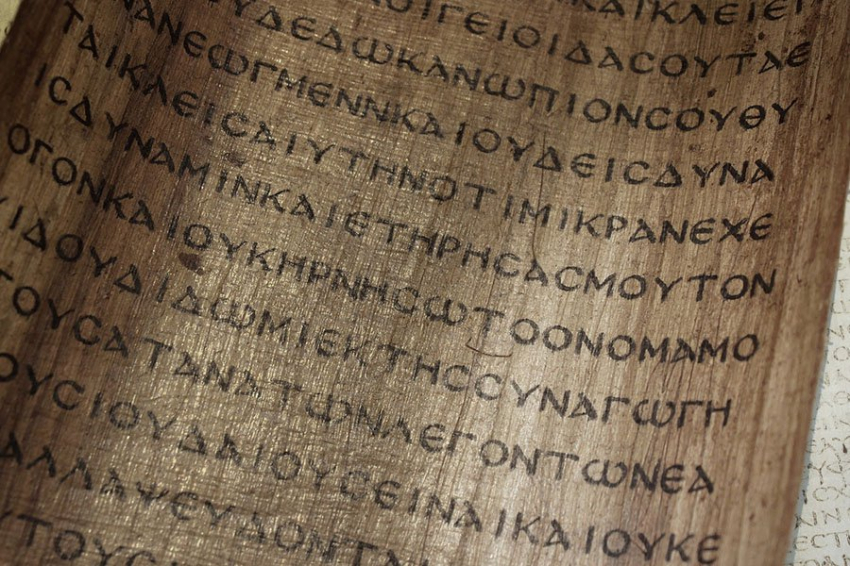 ΚΑΙΚΛΕΙΕΙ
ΟΙΓΕΙΟΙΔΑCΟΥΤΑΕ
ΥΔΕΔΩΚΑΝΩΠΙΟΝCΟΥΘΥ
ΝΑΝΕΩΓΜΕΝΝΚΑΙΟΥΔΕΙCΔΥΝΑ
ΤΑΙΚΛΕΙCΑΙΥΤΗΝΟΤΙΜΙΚΡΑΝΕΧΕ
ΙCΔΥΝΑΜΙΝΚΑΙΕΤΗΡΗCΑCΜΟΥΤΟΝ
ΟΓΟΝΚΑΙΟΥΚΗΡΝΗCΩΤΟΟΝΟΜΑΜΟ
ΥΙΔΟΥΔΙΔΩΜΙΕΚΤΗCCΥΝΑΓΩΓΗ
ΤΟΥCΑΤΑΝΑΤΩΝΛΕΓΟΝΤΩΝΕΑ
ΟΥCΙΟΥΔΑΙΟΥCΕΙΝΑΙΚΑΙΟΥΚΕ
ΑΛΛΑΨΕΥΔΟΝΤΑΙ
ΥΤΟΥC